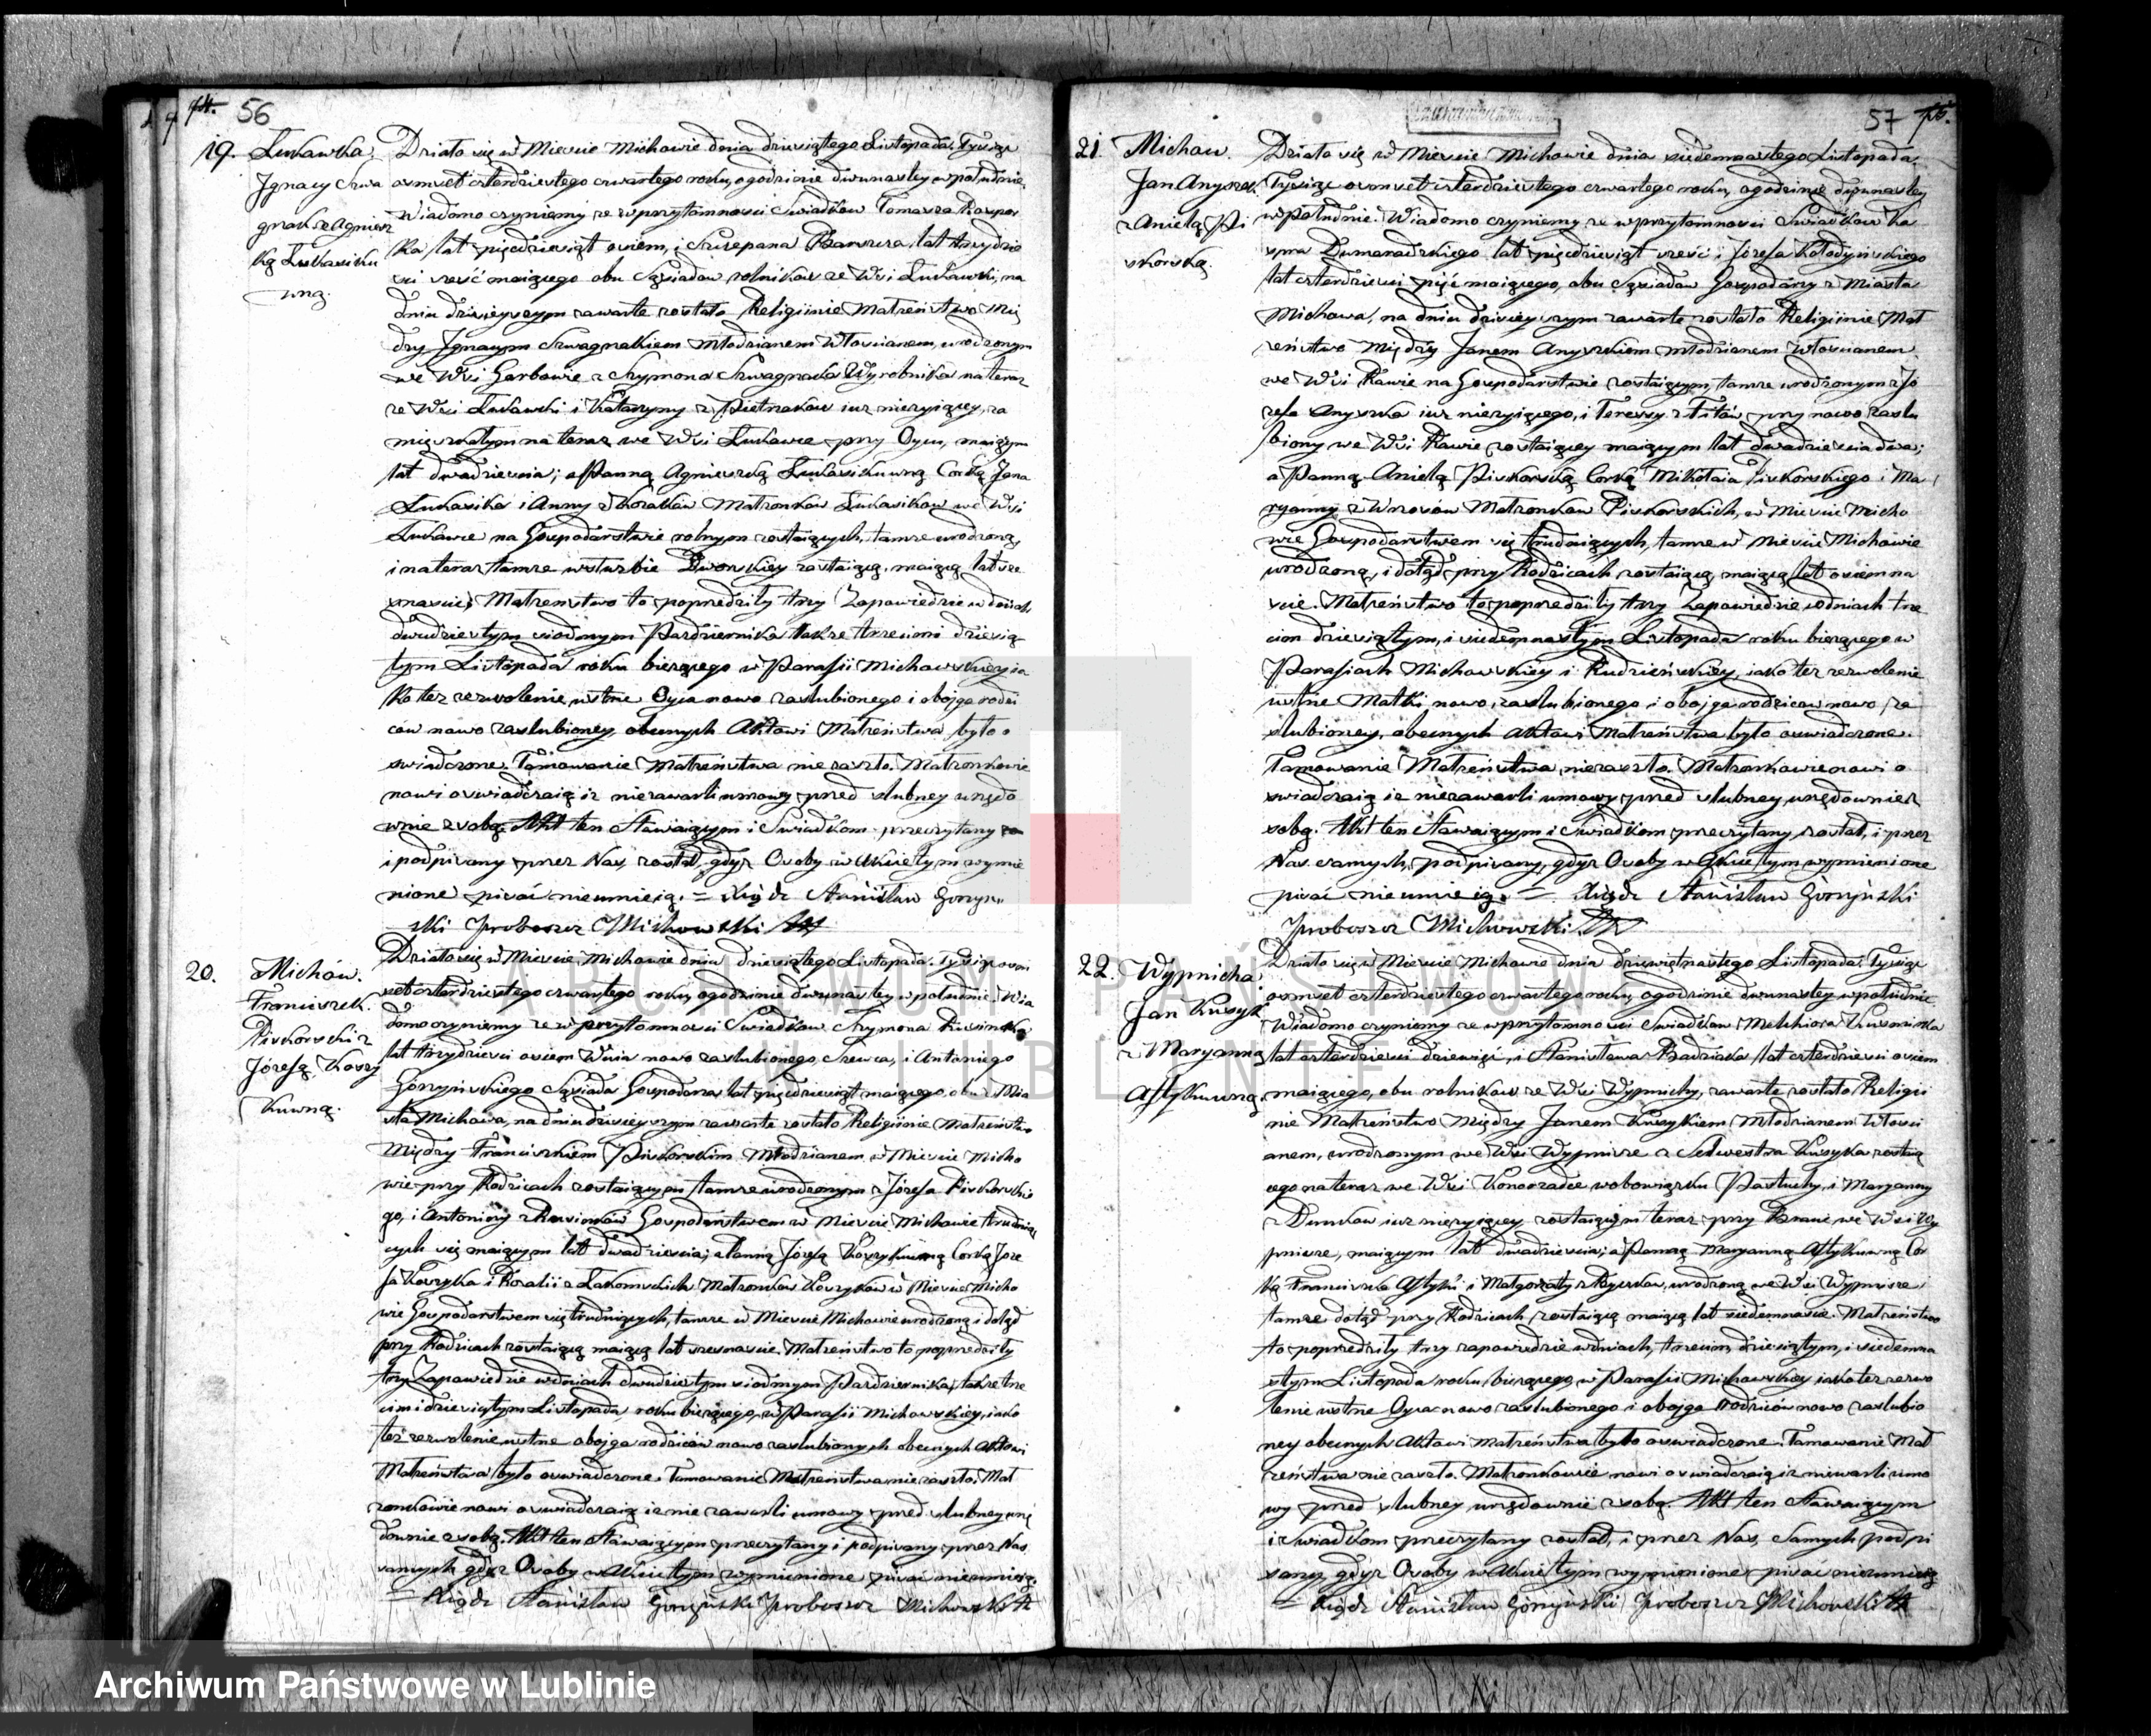 56
19. Łukawka.
Ignacy Szwa
gnak z Agniesz
ką Łukasiku
wną.
Działo się w Mieście Michowie dnia dziesiątego Listopada, Tysiąc
osmset czterdziestego czwartego roku, o godzinie dwunastey w południe,
Wiadomo czynimy że w przytomności Świadków Tomasza
ka lat pięćdziesiąt osiem, i Szczepana lat trzydzie
ści sześć maiącego obu Sąsiadów rolników ze Wsi Łukawki, na
dniu dzisieyszym zawarte zostało Religiinie Małżeństwo Mię
dzy Ignacym Szwagnakiem Młodzianem Włościanem, urodzonym
we Wsi Garbowie z Szymona Szwagnaka Wyrobnika na teraz
ze Wsi Łukawki i Katarzyny z Pietrzaków iuż nieżyiącey, za
mięszkałym na teraz we Wsi Łukawce przy Oycu, maiącym
lat dwadzieścia; a Panną Agnieszką Łukasikuwną Corką Jana
Łukasika i Anny z Małżonków Łukasików we Wsi
Łukawce na Gospodarstwie rolnym zostaiących, tamże urodzoną,
i na teraz tamże w służbie Dworskiey zostaiącą, maiącą lat sze
snaście; Małżeństwo to poprzedziły trzy Zapowiedzie w dniach
dwudziestym siodmym Pazdziernika także trzecim i dziesią
tym Listopada roku bieżącego w Parafii Michowskiey ia
ko też zezwolenie ustne Oyca nowo zaslubionego i oboyga rodzi
ców nowo zaslubioney obecnych Aktowi Małżeństwa było o
swiadczone. Tamowanie Małżeństwa nie zaszło. Małżonkowie
nowi oswiadczaią iż nie zawarli umowy przed slubney urzędo
wnie z sobą. Akt ten stawaiącym i Świadkom przeczytany
i podpisany przez Nas, został, gdyż Osoby w Akcie tym wymie
nione pisać nie umieią. = Xiądz Stanisław Gorzyń
ski Proboszcz Michowski
20. Michów.
Franciszek
Piskorski z
Józefą Koszy
kuwną.
Działo się w Mieście Michowie dnia dziesiątego Listopada, Tysiąc osm
set czterdziestego czwartego roku, o godzinie dwunastey w południe. Wia
domo czynimy że w przytomności Świadków Szymona
lat trzydzieści osiem Wuia nowo zaslubionego, Szewca, i Antoniego
Gorzyńskiego Sąsiada Gospodarza lat pięćdziesiąt maiącego, obu z Mia
sta Michowa, na dniu dzisieyszym zawarte zostało Religiinie Małżeństwo
Między Franciszkiem Piskorskim Młodzianem w Mieście Micho
wie przy Rodzicach zostaiącym, tamże urodzonym z Józefa Piskorskie
go, i Antoniny z Gospodarstwem w Mieście Michowie trudnią
cych się maiącym lat dwadzieścia; a Panną Józefą Koszykuwną Corką Józe
fa Koszyka i Rozalii z Małżonków Koszyków w Mieście Micho
wie Gospodarstwem się trudniących, tamże w Mieście Michowie urodzoną i dotąd
przy Rodzicach zostaiącą maiącą lat szesnaście. Małżeństwo to poprzedziły
trzy Zapowiedzie w dniach dwudziestym siodmym Pazdziernika, także trze
cim i dziesiątym Listopada roku bieżącego, w Parafii Michowskiey, iako
też zezwolenie ustne oboyga rodziców nowo zaslubionych obecnych Aktowi
Małżeństwa było oswiadczone. Tamowanie Małżeństwa nie zaszło. Mał
żonkowie nowi oswiadczaią iż nie zawarli umowy przed slubney urzę
downie z sobą. Akt ten stawaiącym przeczytany i podpisany przez Nas
samych gdyż Osoby w Akcie tym wymienione pisać nie umieią.
= Xiądz Stanisław Gorzyński Proboszcz Michowski
57
21. Michow.
Jan Anyszek
z Anielą Pi
skorską.
Działo się w Mieście Michowie dnia siedemnastego Listopada,
Tysiąc osmset czterdziestego czwartego roku, o godzinie dwunastey
w południe. Wiadomo czynimy że w przytomności Świadków Ka
lat pięćdziesiąt sześć i Józefa Kołodyńskiego
lat czterdzieści pięć maiącego, obu Sąsiadów Gospodarzy z Miasta
Michowa, na dniu dzisieyszym zawarte zostało Religiinie Mał
żeństwo Między Janem Anyszkiem Młodzianem Włościanem
we Wsi Rawie na Gospodarstwie zostaiącym, tamże urodzonym z Jó
zefa Anyszka iuż nieżyiącego, i Teressy z Titów, przy nowo zaslu
biony we Wsi Rawie zostaiącey maiącym lat dwadzieścia dwa;
a Panną Anielą Piskorską Corką Mikołaia Piskorskiego i Ma
ryanny z Małżonków Piskorskich, w Mieście Micho
wie Gospodarstwem się trudniących, tamże w Mieście Michowie
urodzoną, i dotąd przy Rodzicach zostaiącą maiącą lat osiemna
ście. Małżeństwo to poprzedziły trzy Zapowiedzie w dniach trze
cim dziesiątym, i siedemnastym Listopada roku bieżącego w
Parafiach Michowskiey i Rudzieńskiey, iako też zezwolenie
ustne Matki nowo zaslubionego i oboyga rodziców nowo za
slubioney, obecnych Aktowi Małżeństwa było oswiadczone.
Tamowanie Małżeństwa nie zaszło. Małżonkowie nowi o
swiadczaią iż nie zawarli umowy przed slubney, urzędownie z
sobą. Akt ten stawaiącym i Świadkom przeczytany został, i przez
Nas samych, podpisany, gdyż Osoby w Akcie tym wymienione
pisać nie umieią. = Xiądz Stanisław Gorzyński
Proboszcz Michowski
22. Wypnicha
Jan Kusyk
z Maryanną
Aftykuwną.
Działo się w Mieście Michowie dnia dziewiętnastego Listopada, Tysiąc
osmset czterdziestego czwartego roku, o godzinie dwunastey w południe.
Wiadomo czynimy że w przytomności Świadków Melchiora
lat czterdzieści dziewięć, i Stanisława lat czterdzieści osiem
maiącego, obu rolników ze Wsi Wypnichy, zawarte zostało Religii
nie Małżeństwo Między Janem Kusykiem Młodzianem Włości
anem, urodzonym we Wsi Wypnisze z Selwestra Kusyka zostaią
cego na teraz we Wsi w obowiązku Pastucha, i Maryanny
z iuż nieżyiącey zostaiącym teraz przy Bracie we Wsi Wy
pnisze, maiącym lat dwadzieścia; a Panną Maryanną Aftykuwną Cor
ką Franciszka Aftyki i Małgorzaty z urodzoną we Wsi Wypnisze
tamże dotąd przy Rodzicach zostaiącą maiącą lat siedemnaście. Małżeństwo
to poprzedziły trzy zapowiedzie w dniach, trzecim, dziesiątym, i siedemna
stym Listopada roku bieżącego, w Parafii Michowskiey iako też zezwo
lenie ustne Oyca nowo zaslubionego i oboyga Rodziców nowo zaslubio
ney obecnych Aktowi Małżeństwa było oswiadczone. Tamowanie Mał
żeństwa nie zaszło. Małżonkowie nowi oswiadczaią iż niezawarli umo
wy przed slubney, urzędownie z sobą. Akt ten stawaiącym
i Świadkom przeczytany został, i przez Nas, Samych podpi
sany, gdyż Osoby w Akcie tym wymienione pisać nie umieią
= Xiądz Stanisław Gorzyński Proboszcz Michowski
ARCHIWUM PAŃSTWOWE
W LUBLINIE
Archiwum Państwowe w Lublinie